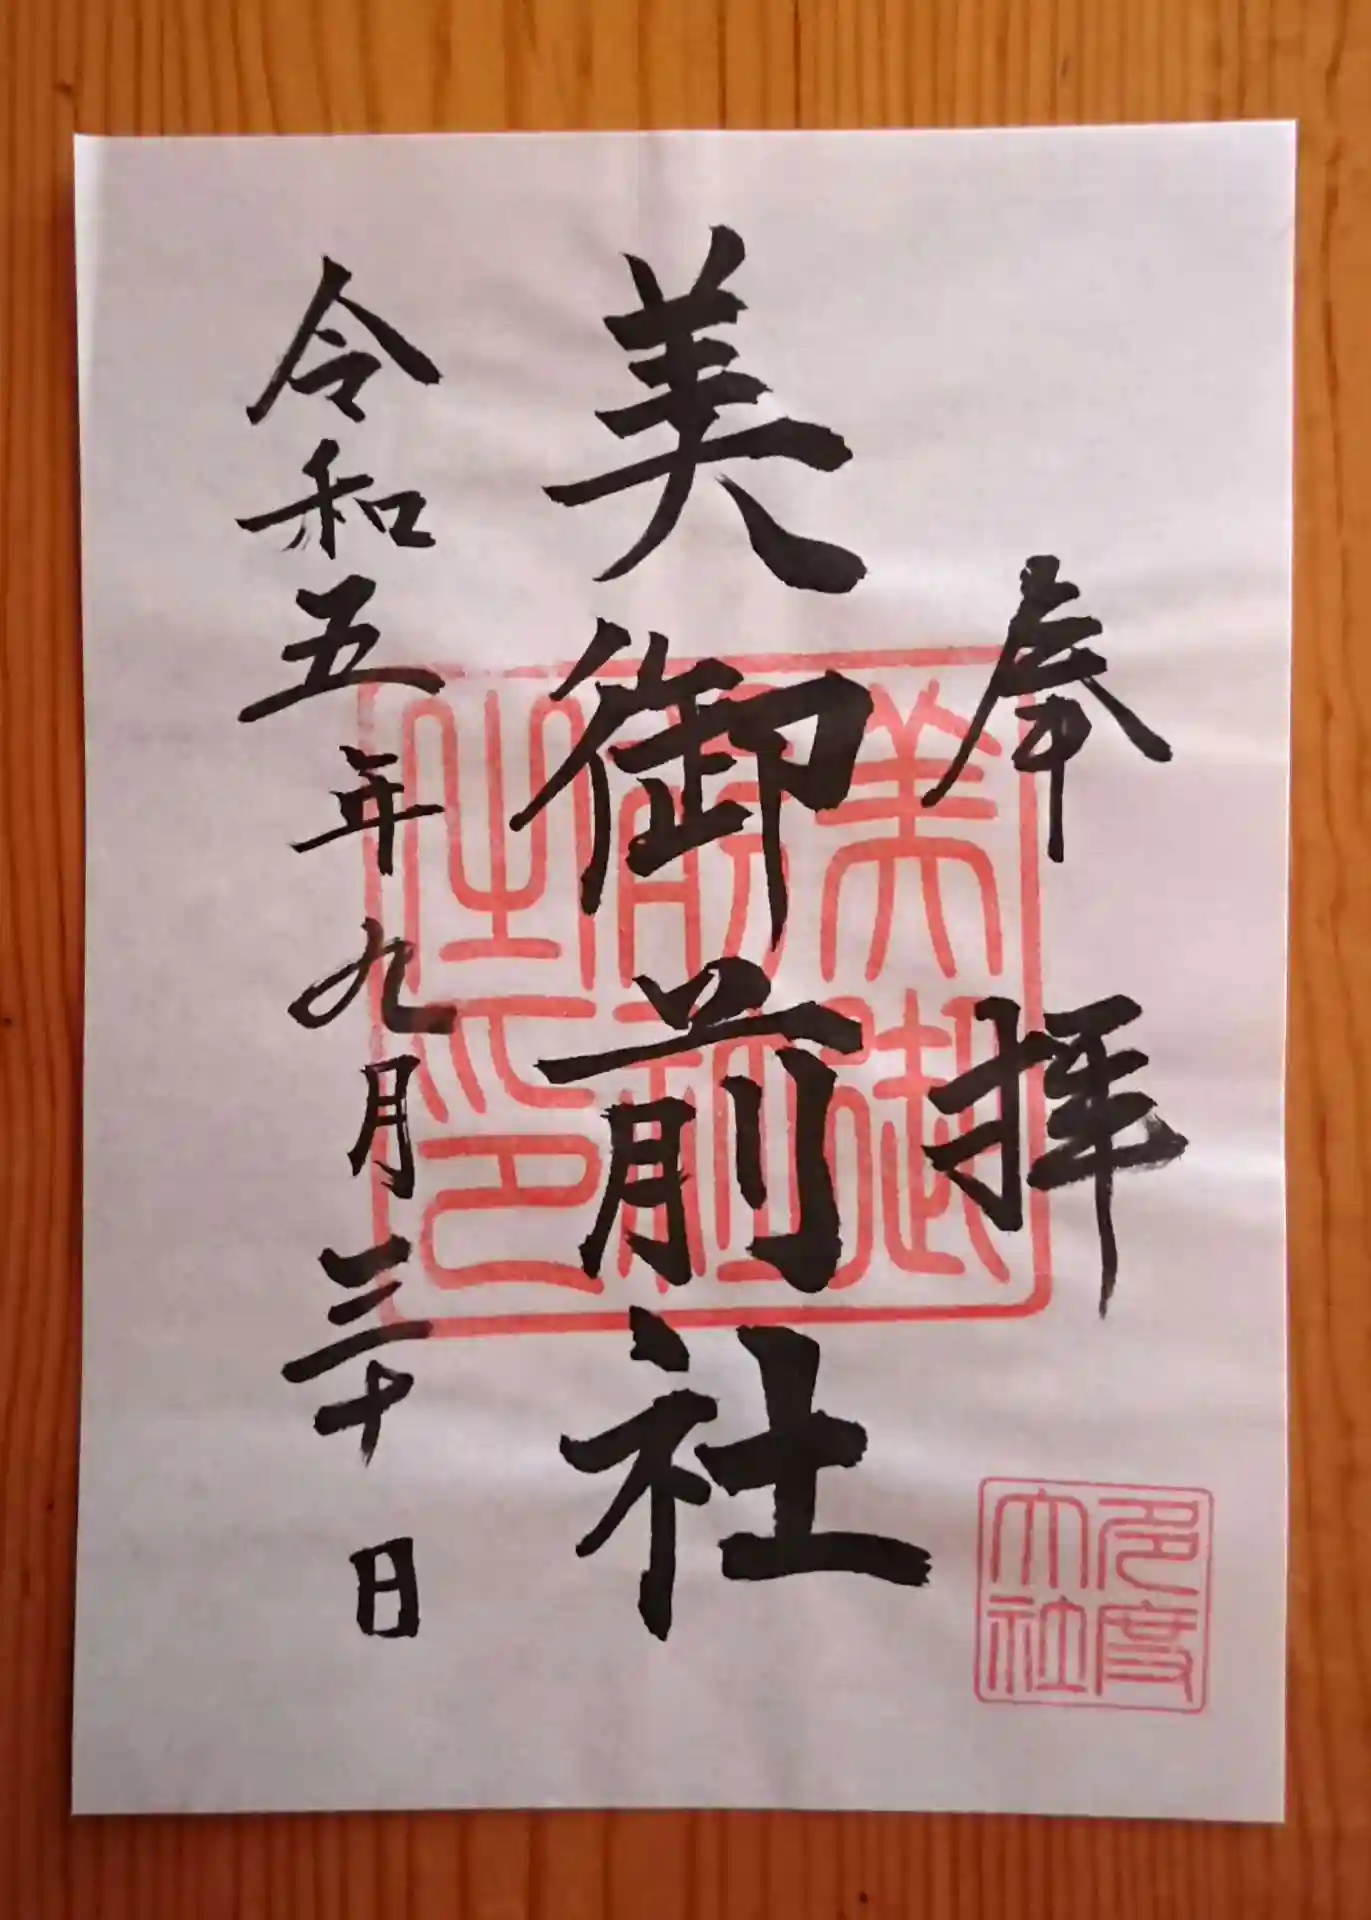 奉拝
美御前社
令和五年九月三十日
美御
前社
之印
多度
大社